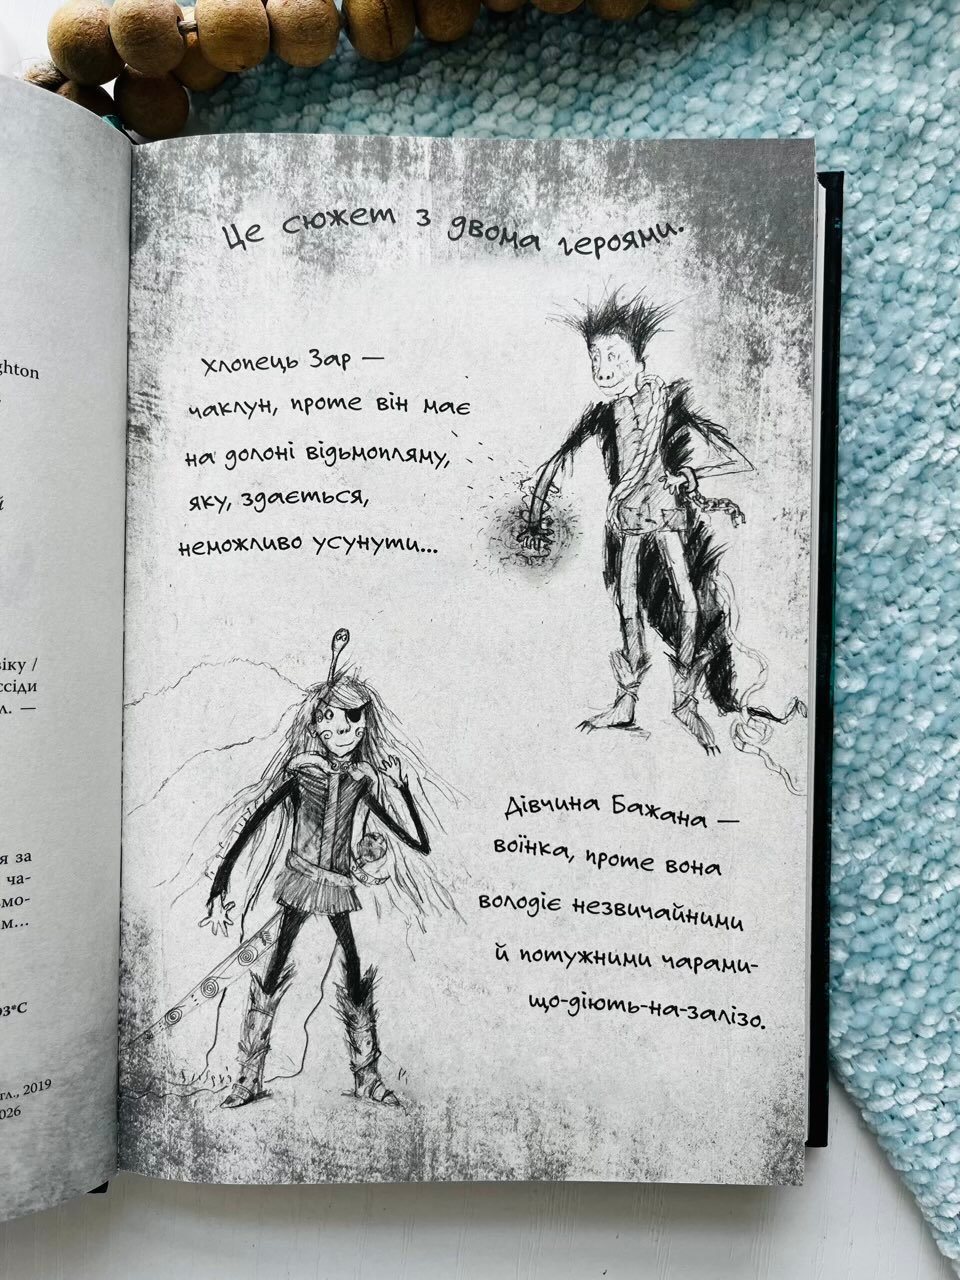 ghton
й
віку /
ссіди
л. —
я за
ча-
ьмо-
м...
03*С
гл., 2019
026
Це сюжет з двома героями.
Хлопець Зар —
чаклун, проте він має
на долоні відьмопляму,
яку, здається,
неможливо усунути...
Дівчина Бажана —
воїнка, проте вона
володіє незвичайними
й потужними чарами-
що-діють-на-залізо.